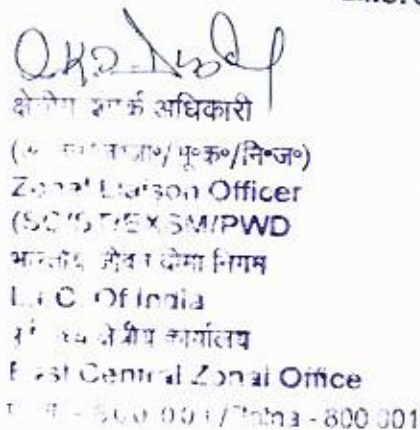 क्षेत्रीय संपर्क अधिकारी
/भू॰क॰/नि॰ज॰)
Zonal Liaison Officer
(SC/ST/EXSM/PWD
भारतीय जीवन बीमा निगम
L.I.C. Of India
क्षेत्रीय कार्यालय
East Central Zonal Office
800 001/Patna - 800 001